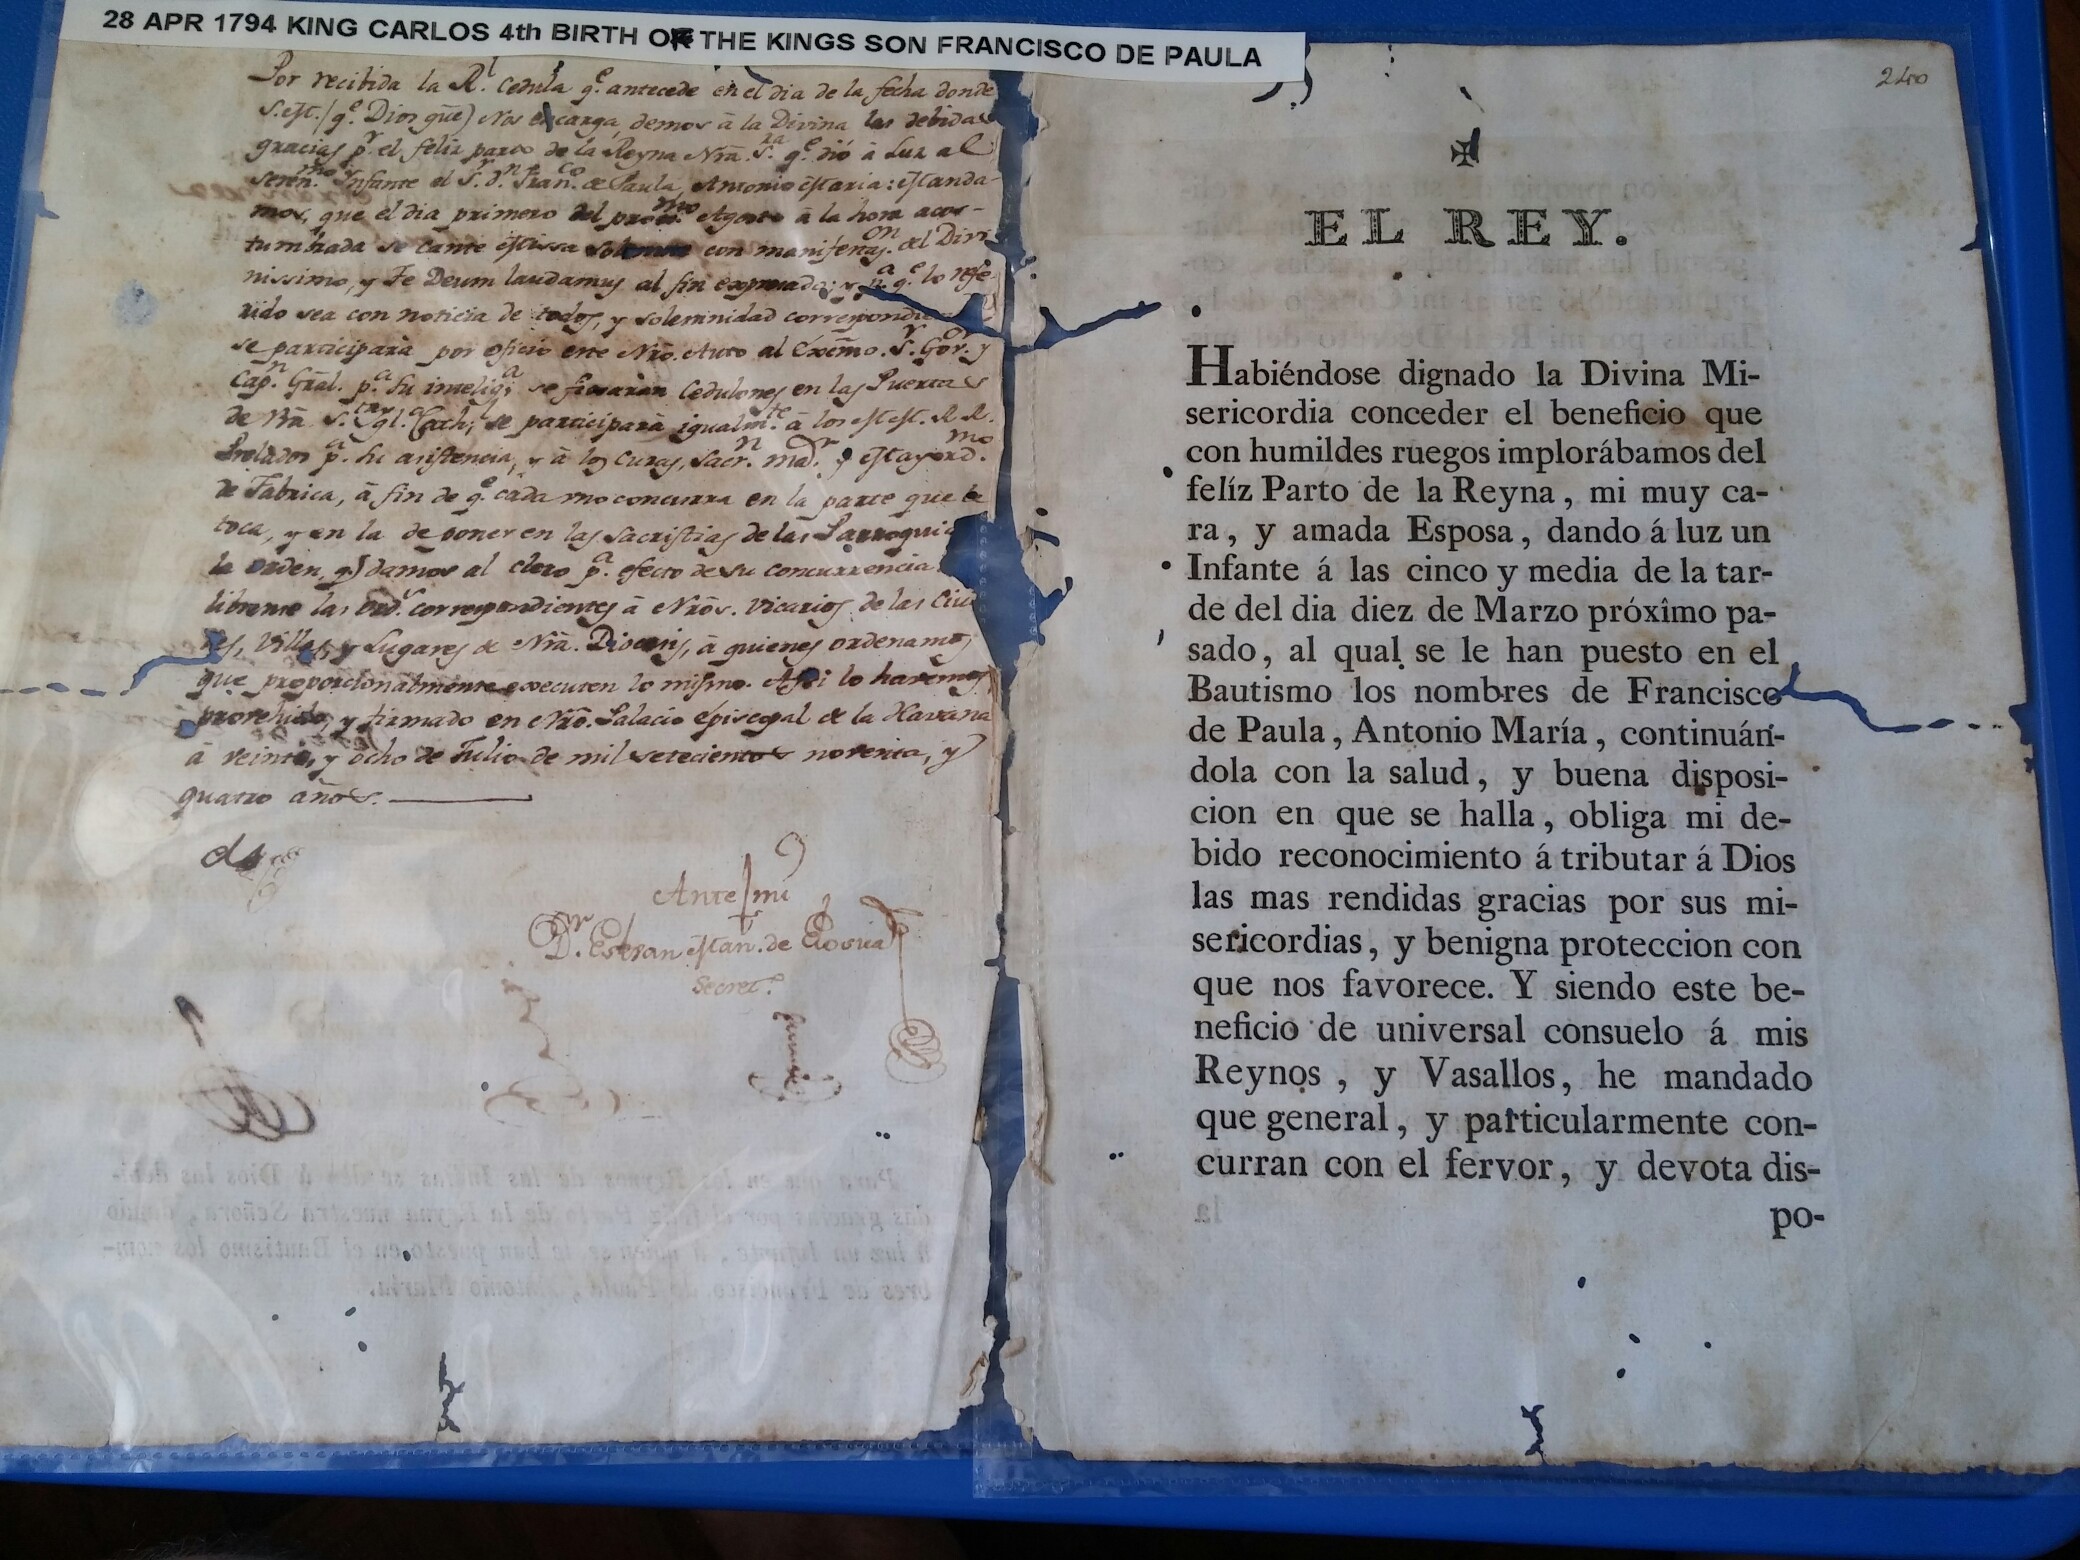 28 APR 1794 KING CARLOS 4th BIRTH OF THE KINGS SON FRANCISCO DE PAULA
Por recibida la Rl. Cedula qe. antecede en el dia de la fecha donde
S.M. (qe. Dios gūe) Nos encarga, demos â la Divina las debidas
gracias pr. el feliz parto de la Reyna Nrā. Sra. qe. diò â Luz al
Serenmo. Infante el Sr. Dn. Franco. de Paula, Antonio Maria: Manda-
mos, que el dia primero del proximo Agosto â la hora acos-
tumbrada se cante Missa solemne con manifestaon. del Divi
nissimo, y Te Deum laudamus al fin expresado; y pa. qe. lo refe-
rido sea con noticia de todos, y solemnidad
se participarà por oficio este Nrō. Auto al Exēmo. Sr. Gōor. y
Capn. Grāl. pa. su inteliga; se fixaràn Cedulones en las Puertas
de Nrā. Sta. Ygla. Cath; se participarà igualmte. â los MM. RR.
Prelados pa. su asistencia, y â los Curas,
de Fabrica, â fin de qe. cada uno concurra en la parte que le
toca, y en la de poner en las Sacristias de las
la orden, q. damos al clero pa. efecto de su concurrencia
librense las correspondientes â Nrōs. Vicarios de las
Villas, y Lugares de Nrā. Diocesis, â quienes ordenamos
que proporcionalmente executen lo mismo. Assi lo haremos
y firmado en Nrō. Palacio Episcopal de la Havana
â veinte, y ocho de Julio de mil setecientos noventa, y
quatro años.
Ante mi
Dr. Estevan Man. de
Secret.
Para que en los Reynos de las Indias se dén á Dios las debi-
das gracias por el feliz Parto de la Reyna nuestra Señora, dando
á luz un Infante, á quien se le han puesto en el Bautismo los nom-
bres de Francisco de Paula, Antonio María.
240
✠
EL REY.
Habiéndose dignado la Divina Mi-
sericordia conceder el beneficio que
con humildes ruegos implorábamos del
felíz Parto de la Reyna, mi muy ca-
ra, y amada Esposa, dando á luz un
Infante á las cinco y media de la tar-
de del dia diez de Marzo próxîmo pa-
sado, al qual se le han puesto en el
Bautismo los nombres de Francisco
de Paula, Antonio María, continuán-
dola con la salud, y buena disposi-
cion en que se halla, obliga mi de-
bido reconocimiento á tributar á Dios
las mas rendidas gracias por sus mi-
sericordias, y benigna proteccion con
que nos favorece. Y siendo este be-
neficio de universal consuelo á mis
Reynos, y Vasallos, he mandado
que general, y particularmente con-
curran con el fervor, y devota dis-
po-